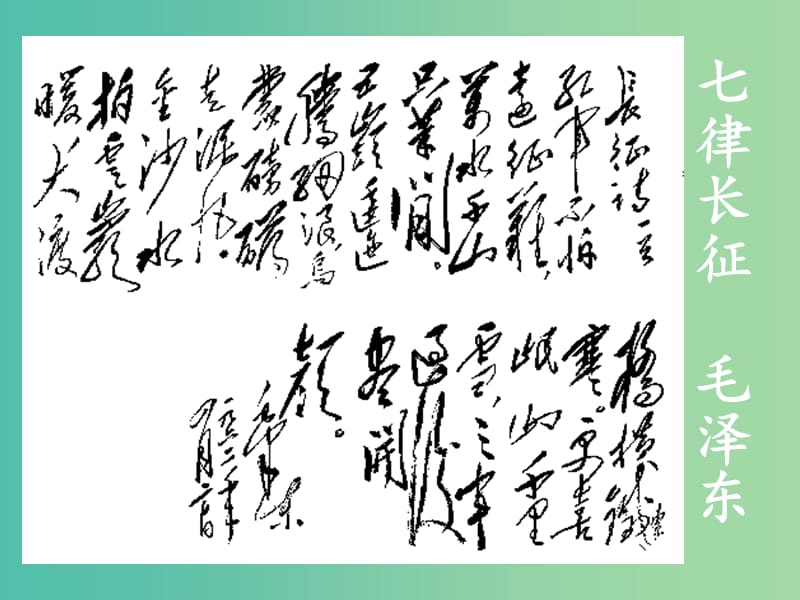 七律长征 毛泽东
長征詩一首
紅軍不怕
遠征難，
萬水千山
只等閒。
五嶺逶迤
騰細浪，烏
蒙磅礴
走泥丸。
金沙水
拍雲崖
暖大渡
橋橫鐵索
寒。更喜
岷山千里
雪，三軍
過後
盡開
顏。
毛澤東